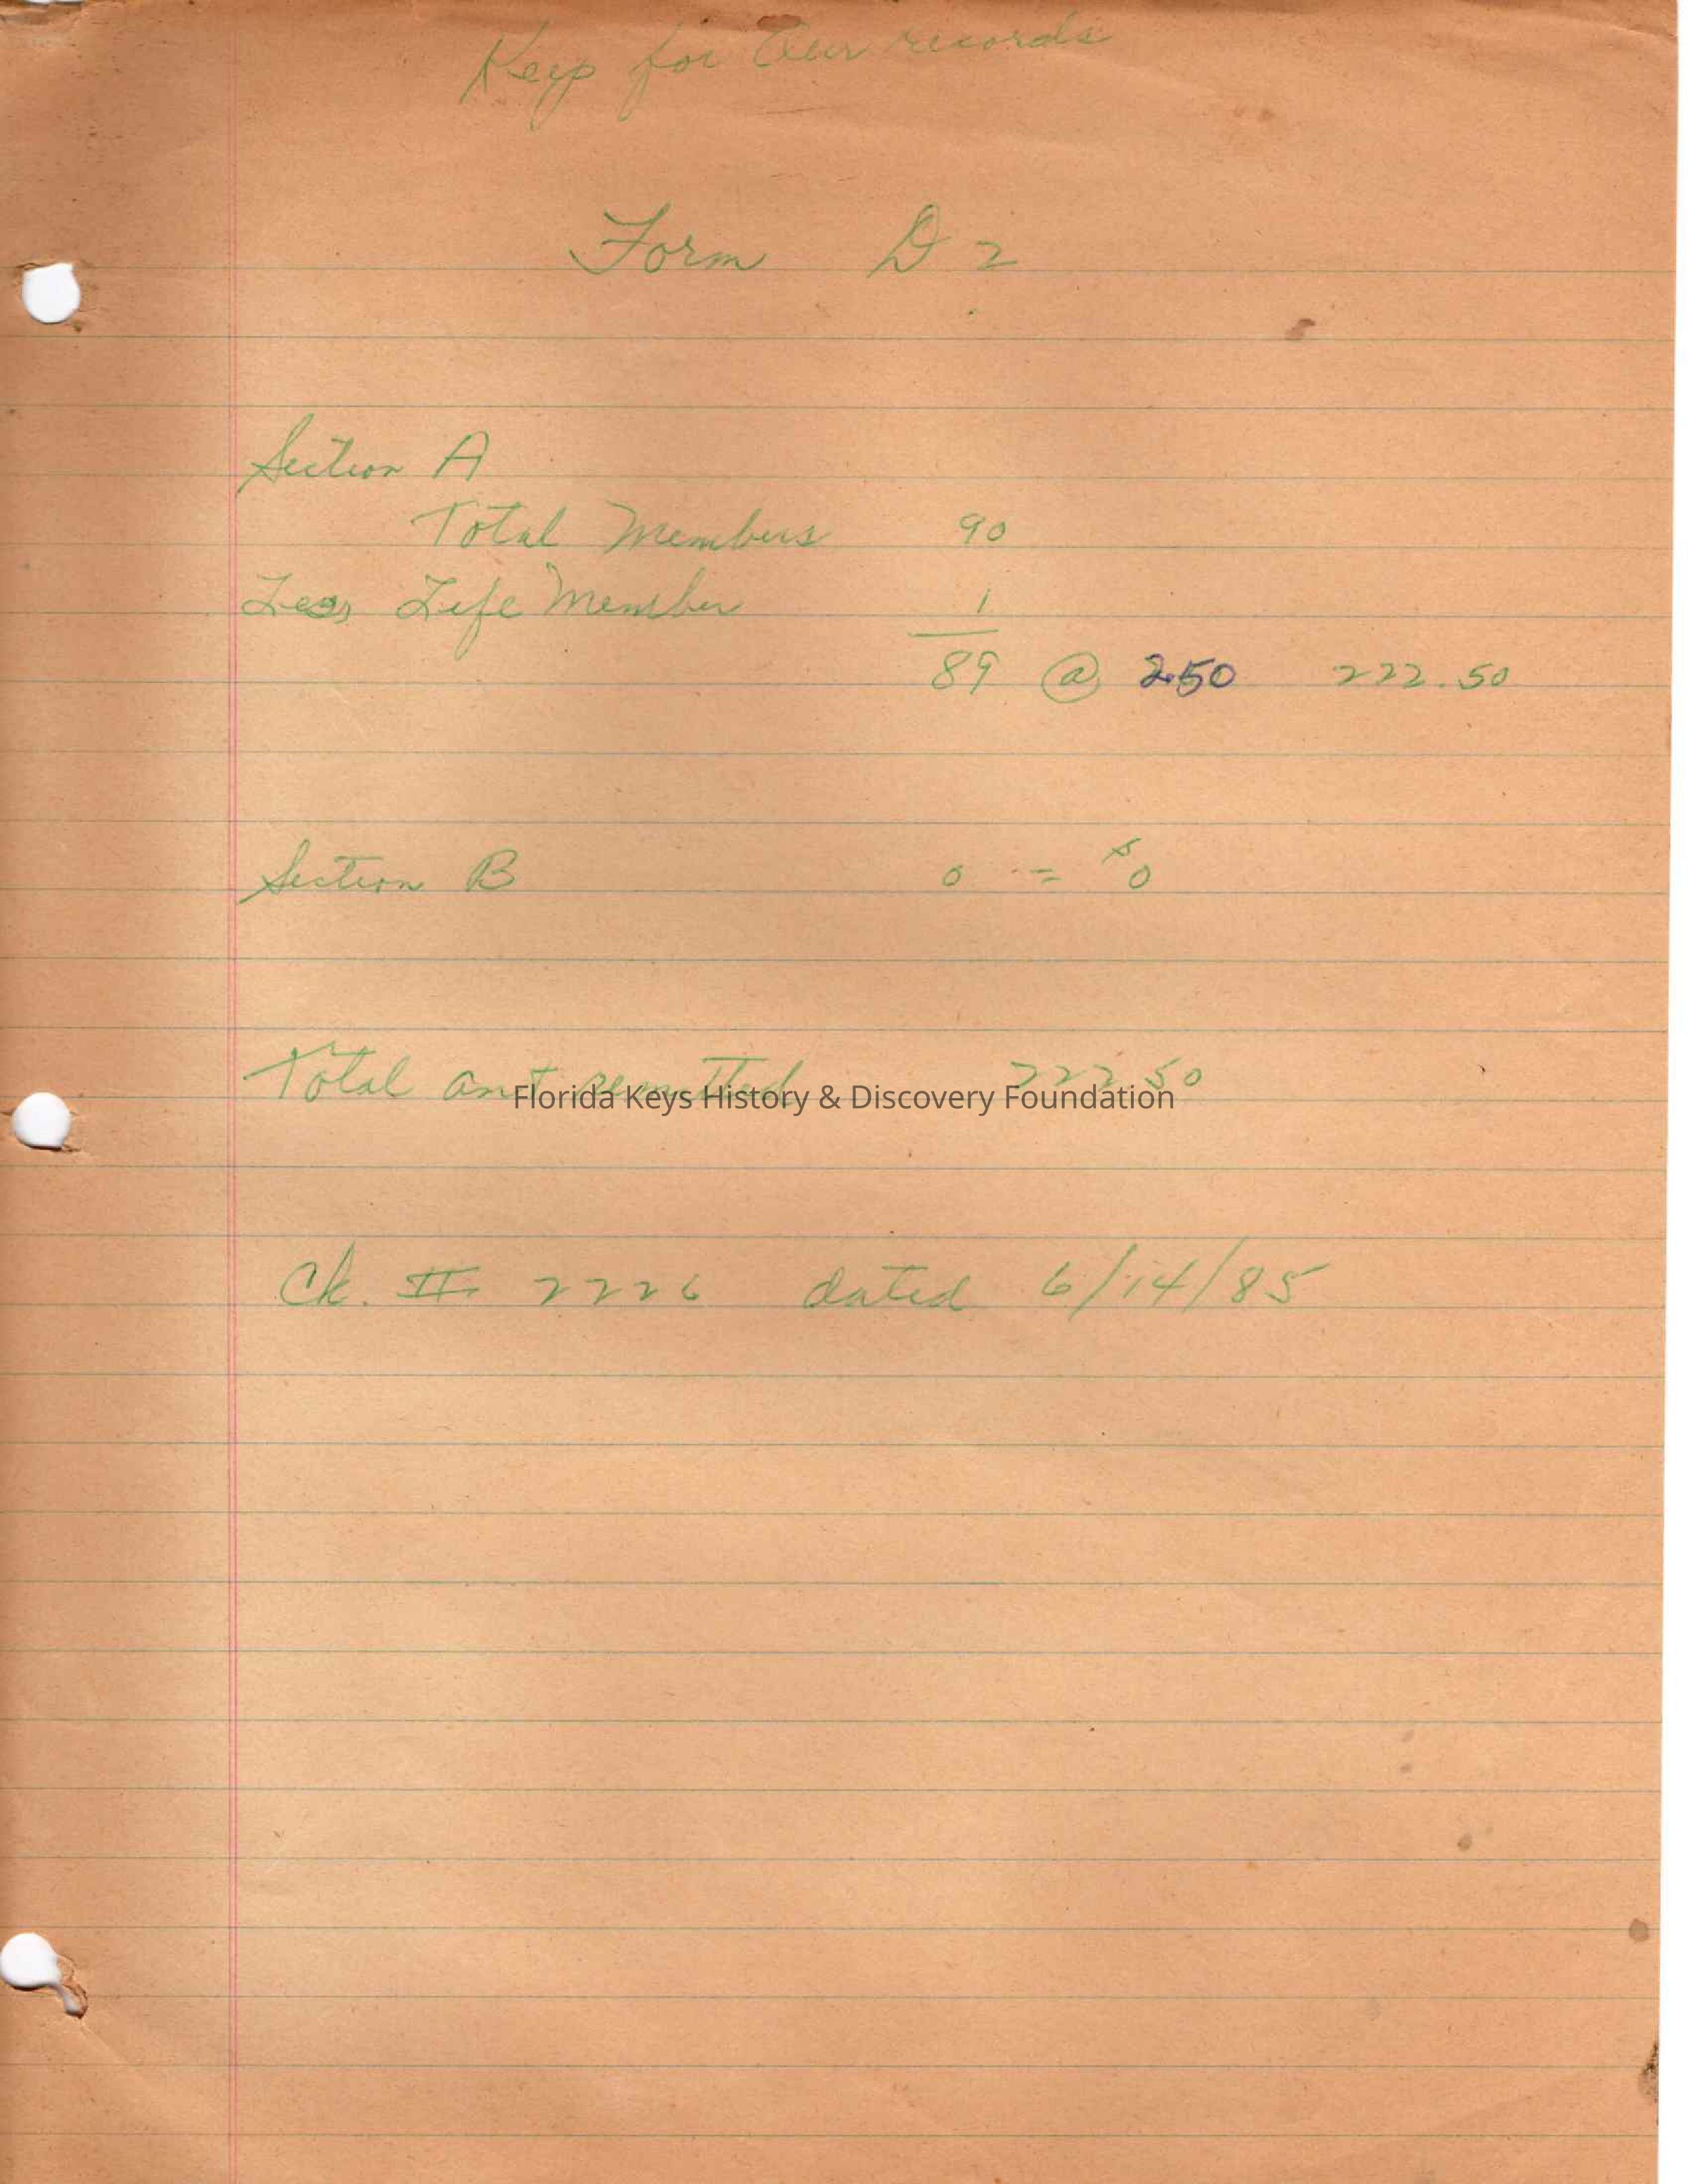 Keep for Our records
Form D2
Section A
Total Members 90
Less Life Member 1
89 @ 2.50 222.50
Section B 0 = $0
Total amt remitted 222.50
Florida Keys History & Discovery Foundation
Ck. # 2226 dated 6/14/85